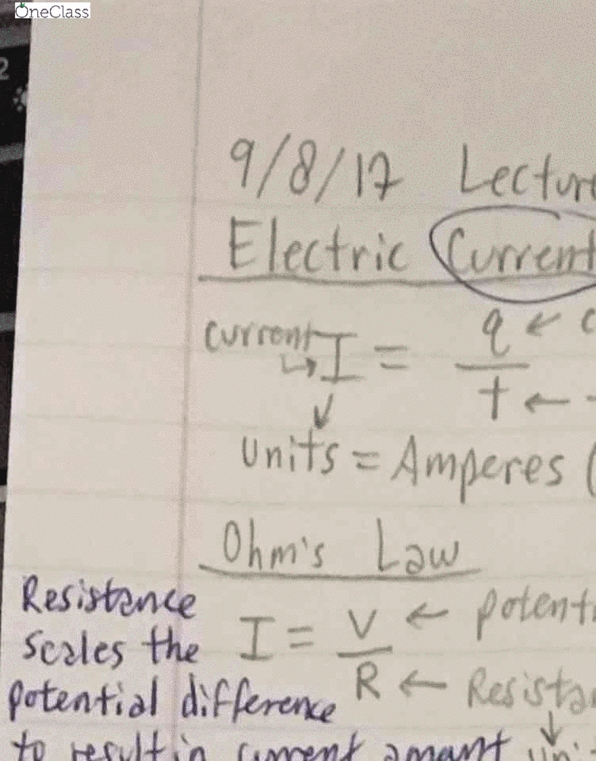 OneClass
2
9/8/17 Lecture
Electric Current
current I = q ← c
t ←
units = Amperes (
Ohm's Law
Resistance
scales the
potential difference
to result in current amount
I = V ← potent
R ← Resista